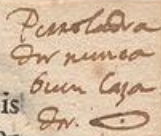 Perro ladra
dor nunca
buen caza
dor.
is